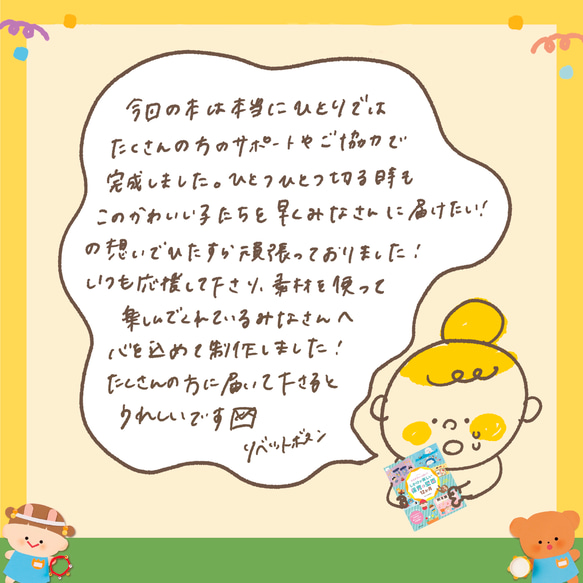 今回の本は本当にひとりでは
たくさんの方のサポートやご協力で
完成しました。ひとつひとつ切る時も
このかわいい子たちを早くみなさんに届けたい!
の想いでひたすら頑張っておりました!
いつも応援して下さり、素材を使って
楽しんでくれているみなさんへ
心を込めて制作しました!
たくさんの方に届いて下さると
うれしいです
リベットボタン
12ヶ月